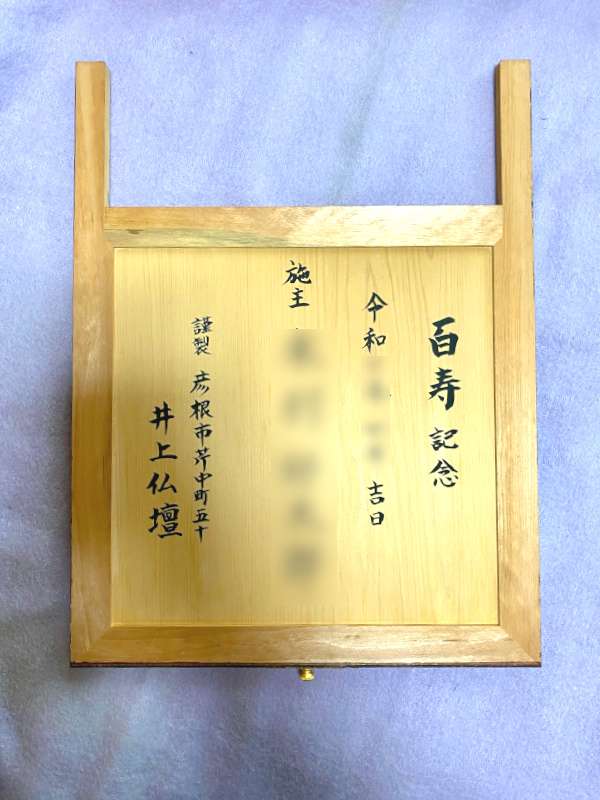 百寿記念
令和 吉日
施主
謹製 彦根市芹中町五十
井上仏壇